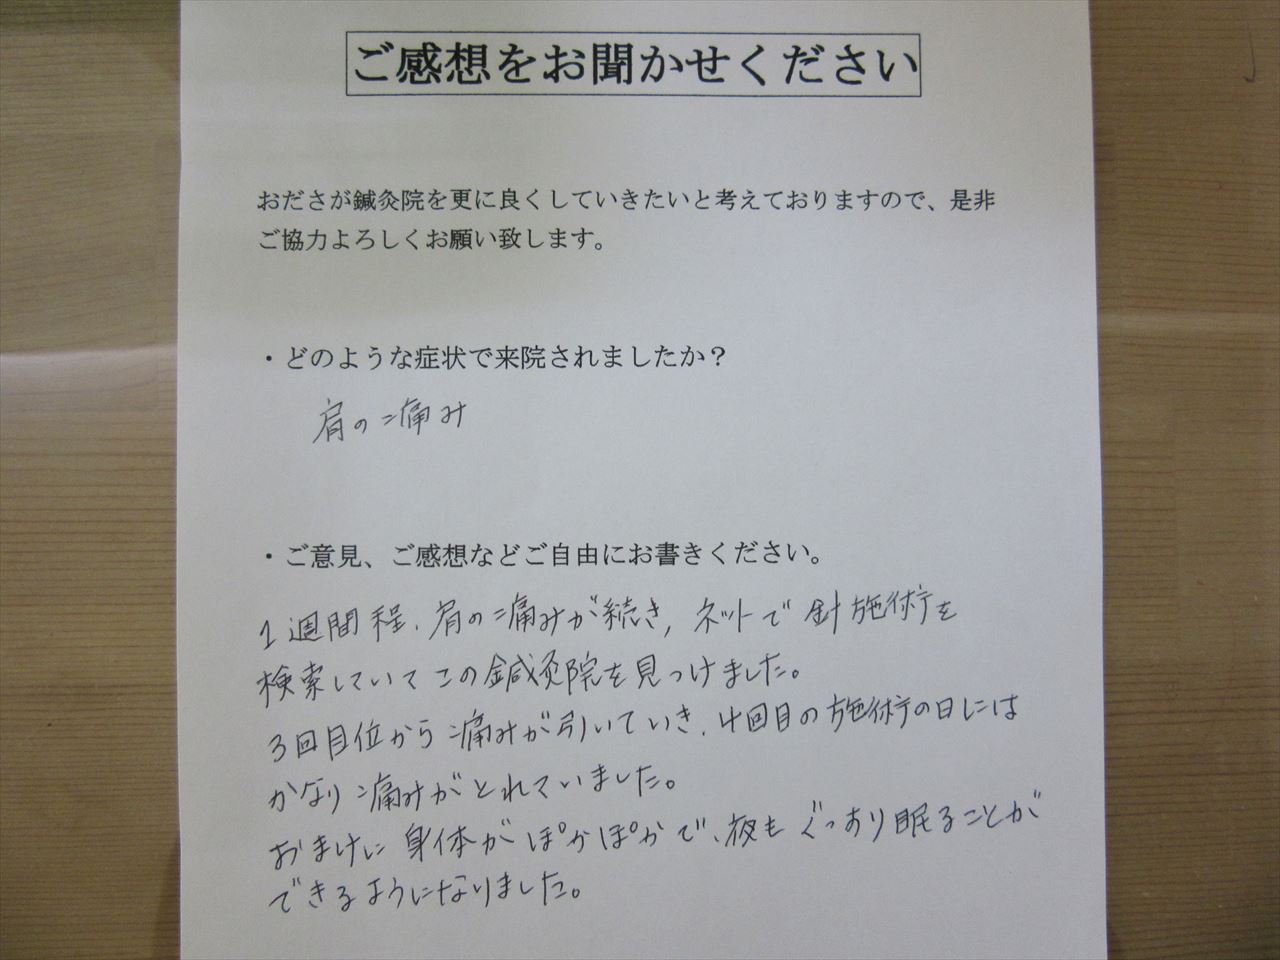 ご感想をお聞かせください
おださが鍼灸院を更に良くしていきたいと考えておりますので、是非
ご協力よろしくお願い致します。
・どのような症状で来院されましたか？
肩の痛み
・ご意見、ご感想などご自由にお書きください。
1週間程、肩の痛みが続き、ネットで針施術を
検索していてこの鍼灸院を見つけました。
3回目位から痛みが引いていき、4回目の施術の日には
かなり痛みがとれていました。
おまけに身体がぽかぽかで、夜もぐっすり眠ることが
できるようになりました。